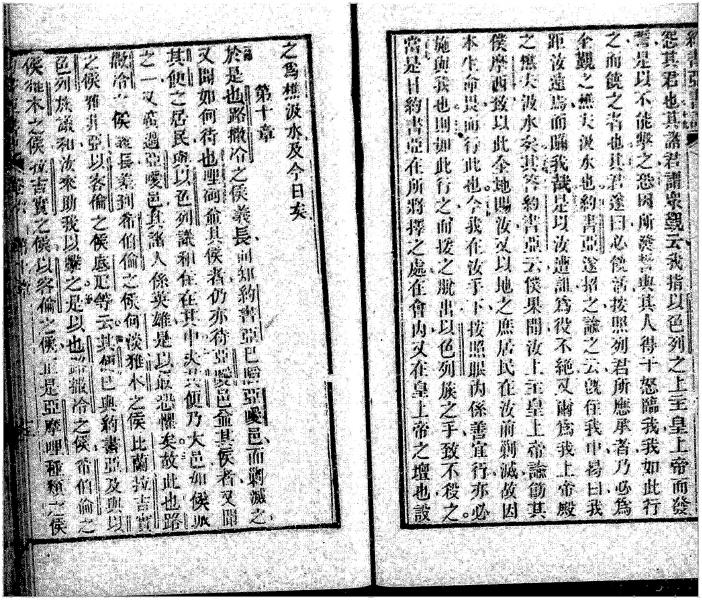 怨其君也其諸君謂眾觀云我指以色列之上主皇上帝而發
誓是以不能擊之恐因所發誓與其人得干怒臨我我如此行
之而饒之者也其君遂曰必饒活按照列君所應承者乃必為
全觀之樵夫汲水也約書亞遂招之諭之云旣住我中曷曰我
距汝遠焉而瞞我哉是以汝遭詛為役不絕又爾為我上帝殿
之樵夫汲水矣其答約書亞云僕果聞汝上主皇上帝諭飭其
僕摩西致以此全地賜汝又以地之庶居民在汝前剿滅故因
本生命畏而行此也今我在汝手下按照眼內係善宜行亦必
施與我也則如此行之而援之脫出以色列族之手致不殺之
當是日約書亞在所將擇之處在會內又在皇上帝之壇也設
之為樵汲水及今日矣
第十章
於是也路撒冷之侯義長而知約書亞已亞噯邑而剿滅之
又聞如何待也哩其侯者仍亦待亞噯邑並其侯者又聞
其便之居民與以色列議和住在其中夾其便乃大邑如侯
之一又過亞噯邑其諸人係英雄是以最恐懼矣故此也路
撒冷之侯義長差到希伯倫之侯何淡雅木之侯比蘭拉吉實
之侯雅非亞以客倫之侯底等云其便已與約書亞及與以
色列族議和汝來助我以擊之是以也路撒冷之侯希伯倫之
侯雅木之侯拉吉實之侯以客倫之侯是亞摩哩種類之侯